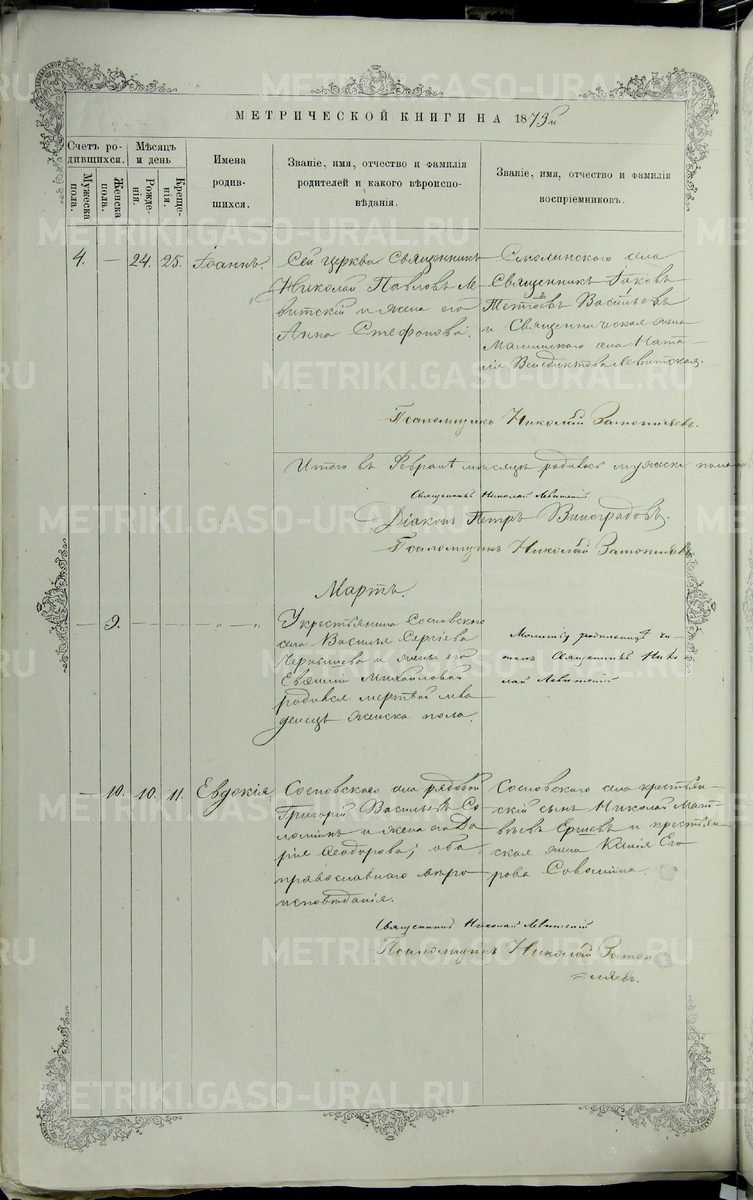 МЕТРИЧЕСКОЙ КНИГИ НА 1873й
Счетъ ро-
дившихся.
Мужеска
пола.
Женска
пола.
Мѣсяцъ
и день
Рожде-
нія.
Креще-
нія.
Имена
родив-
шихся.
Званіе, имя, отчество и фамилія
родителей и какого вѣроиспо-
вѣданія.
Званіе, имя, отчество и фамилія
воспріемниковъ.
4. — 24. 25. Іоаннъ.
Сей церкви Священникъ
Николай Павловъ Ле
витскій и жена его
Анна Стефанова.
Смолинского села
Священникъ Іаковъ
Васильевъ
и Священническая жена
села Ната-
лія Венедиктова Левитская.
Псаломщикъ Николай
Итого въ Февралѣ мѣсяцѣ родилось мужеска пола
Священникъ Николай Левитскій
Діаконъ Петръ Виноградовъ.
Псаломщикъ Николай
Мартъ.
— 9. — — " — "
У крестьянина Сосновскаго
села Василья Сергіева
Чернышева и жены его
Евѳиміи Михайловой
родился мертвый мла
денецъ женска пола.
Молитву родильницѣ чи-
талъ Священникъ Нико
лай Левитскій
— 10. 10. 11. Евдокія
Сосновскаго села рядовой
Григорій Васильевъ Со
ломинъ и жена его Да
рія Ѳеодорова; оба
православнаго вѣро
исповѣданія.
Сосновскаго села крестьян-
скій сынъ Николай Мат-
вѣевъ Ершевъ и крестьян
ская жена Ксенія Его
рова
Священникъ Николай Левитскій
Псаломщикъ Николай
METRIKI.GASO-URAL.RU